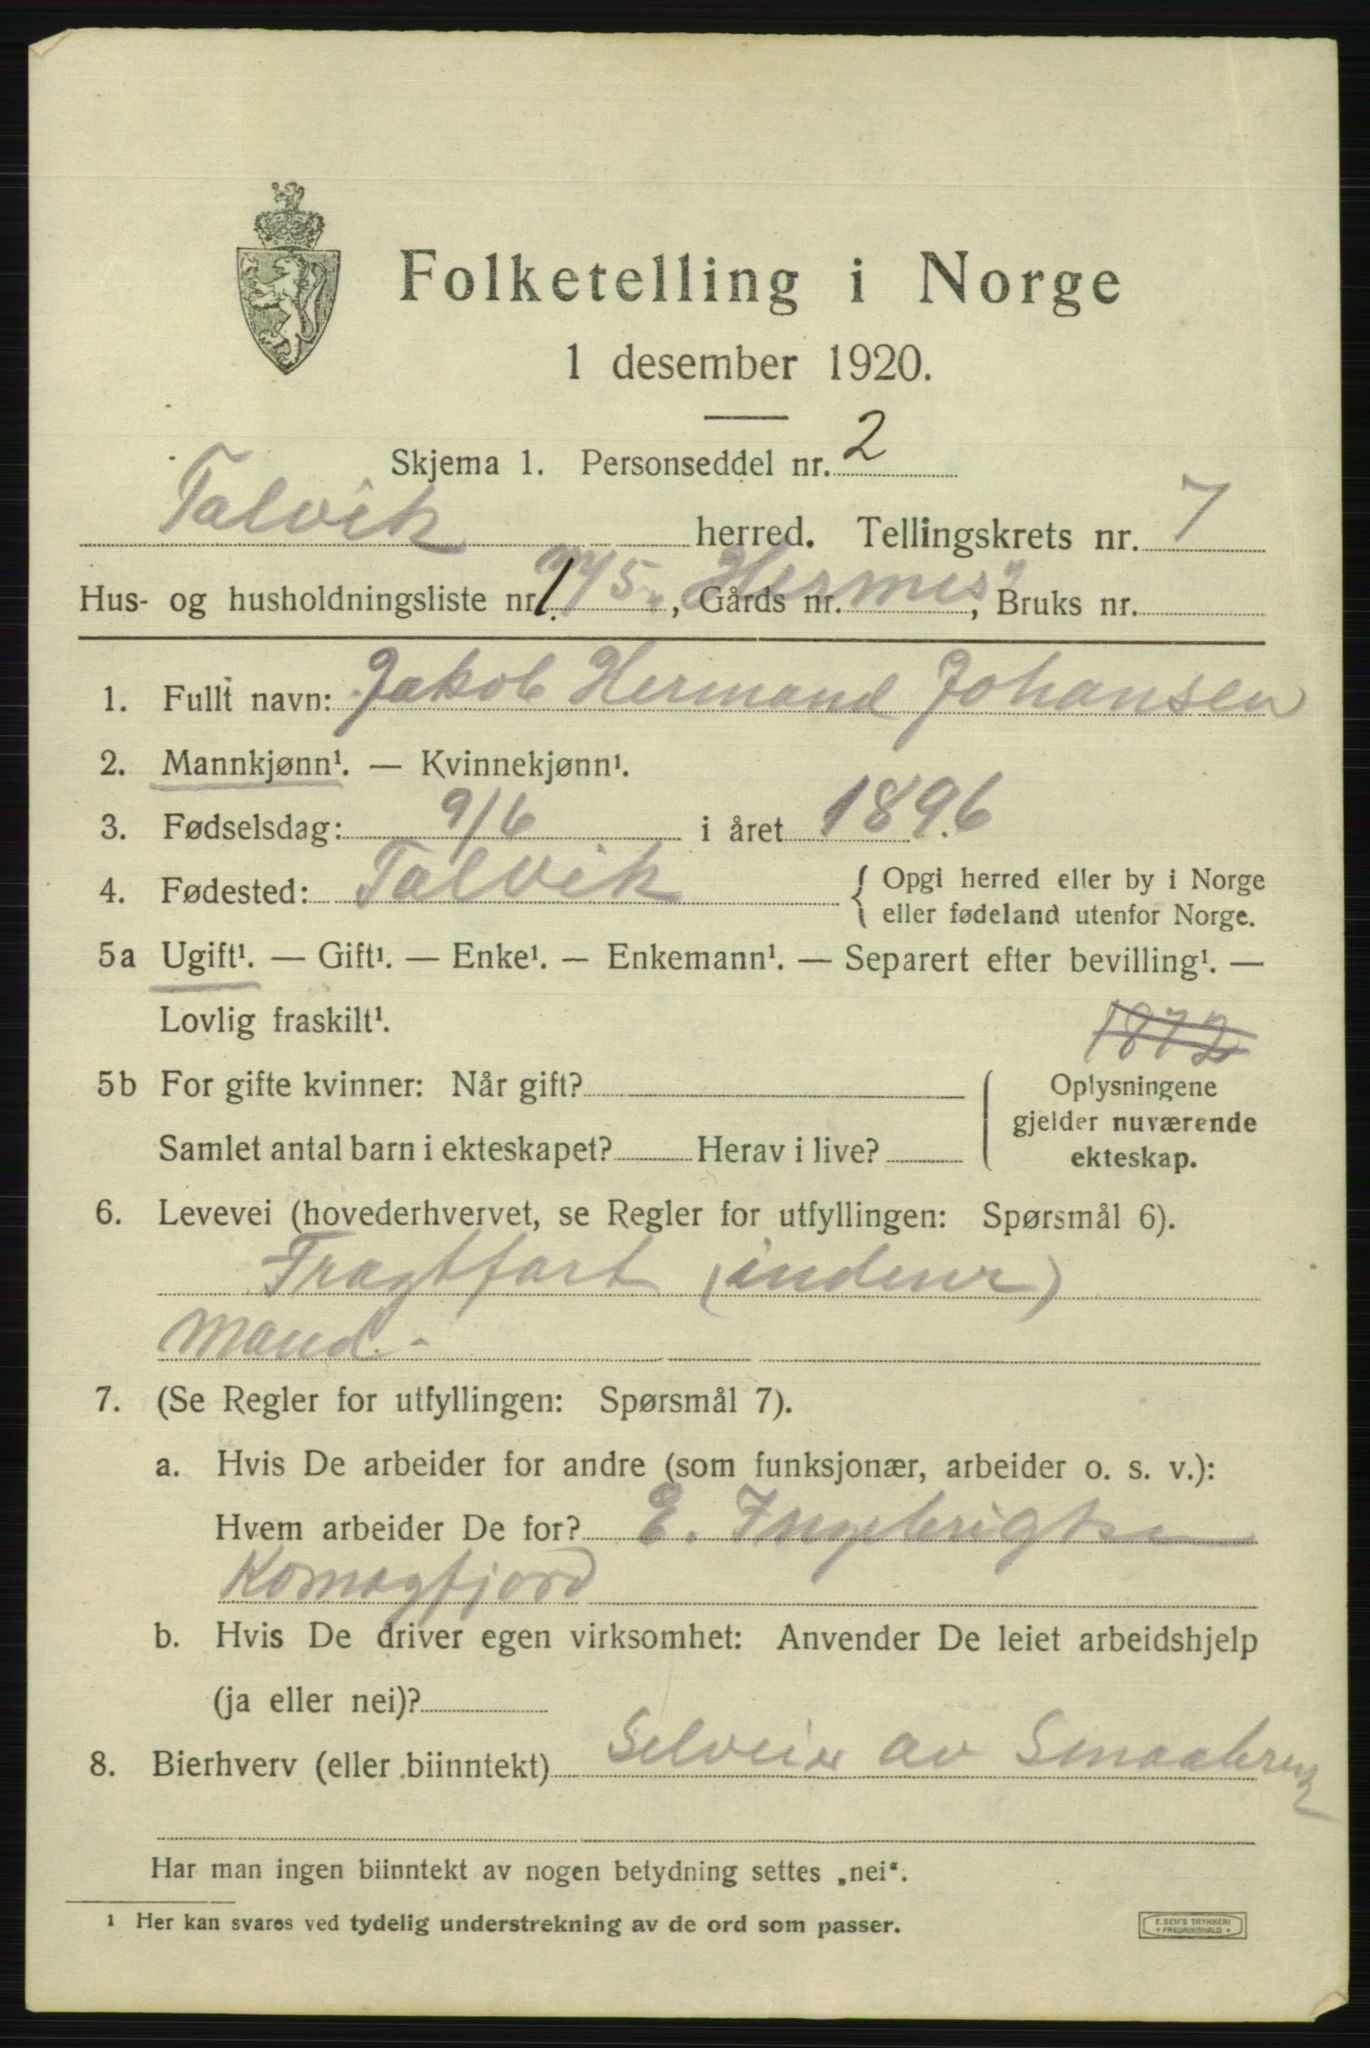 Folketelling i Norge
1 desember 1920.
Skjema 1. Personseddel nr. 2
Talvik herred. Tellingskrets nr. 7
Hus- og husholdningsliste nr. 1. m/s „Hermes", Gårds nr. , Bruks nr.
1. Fullt navn: Jakob Hermand Johansen
2. Mannkjønn¹. — Kvinnekjønn¹.
3. Fødselsdag: 9/6 i året 1896
4. Fødested: Talvik { Opgi herred eller by i Norge
eller fødeland utenfor Norge.
5a Ugift¹. — Gift¹. — Enke¹. — Enkemann¹. — Separert efter bevilling¹. —
Lovlig fraskilt¹.
1872
5b For gifte kvinner: Når gift?
Samlet antal barn i ekteskapet? Herav i live?
Oplysningene
gjelder nuværende
ekteskap.
6. Levevei (hovederhvervet, se Regler for utfyllingen: Spørsmål 6).
Fragtfart (indenr)
Mand.-
7. (Se Regler for utfyllingen: Spørsmål 7).
a. Hvis De arbeider for andre (som funksjonær, arbeider o. s. v.):
Hvem arbeider De for? E. Ingebrigtsen
Komagfjord
b. Hvis De driver egen virksomhet: Anvender De leiet arbeidshjelp
(ja eller nei)?
8. Bierhverv (eller biinntekt) Selveier av Smaabruk
Har man ingen biinntekt av nogen betydning settes „nei".
¹ Her kan svares ved tydelig understrekning av de ord som passer.
E. SEM'S TRYKKERI
FREDRIKSHALD